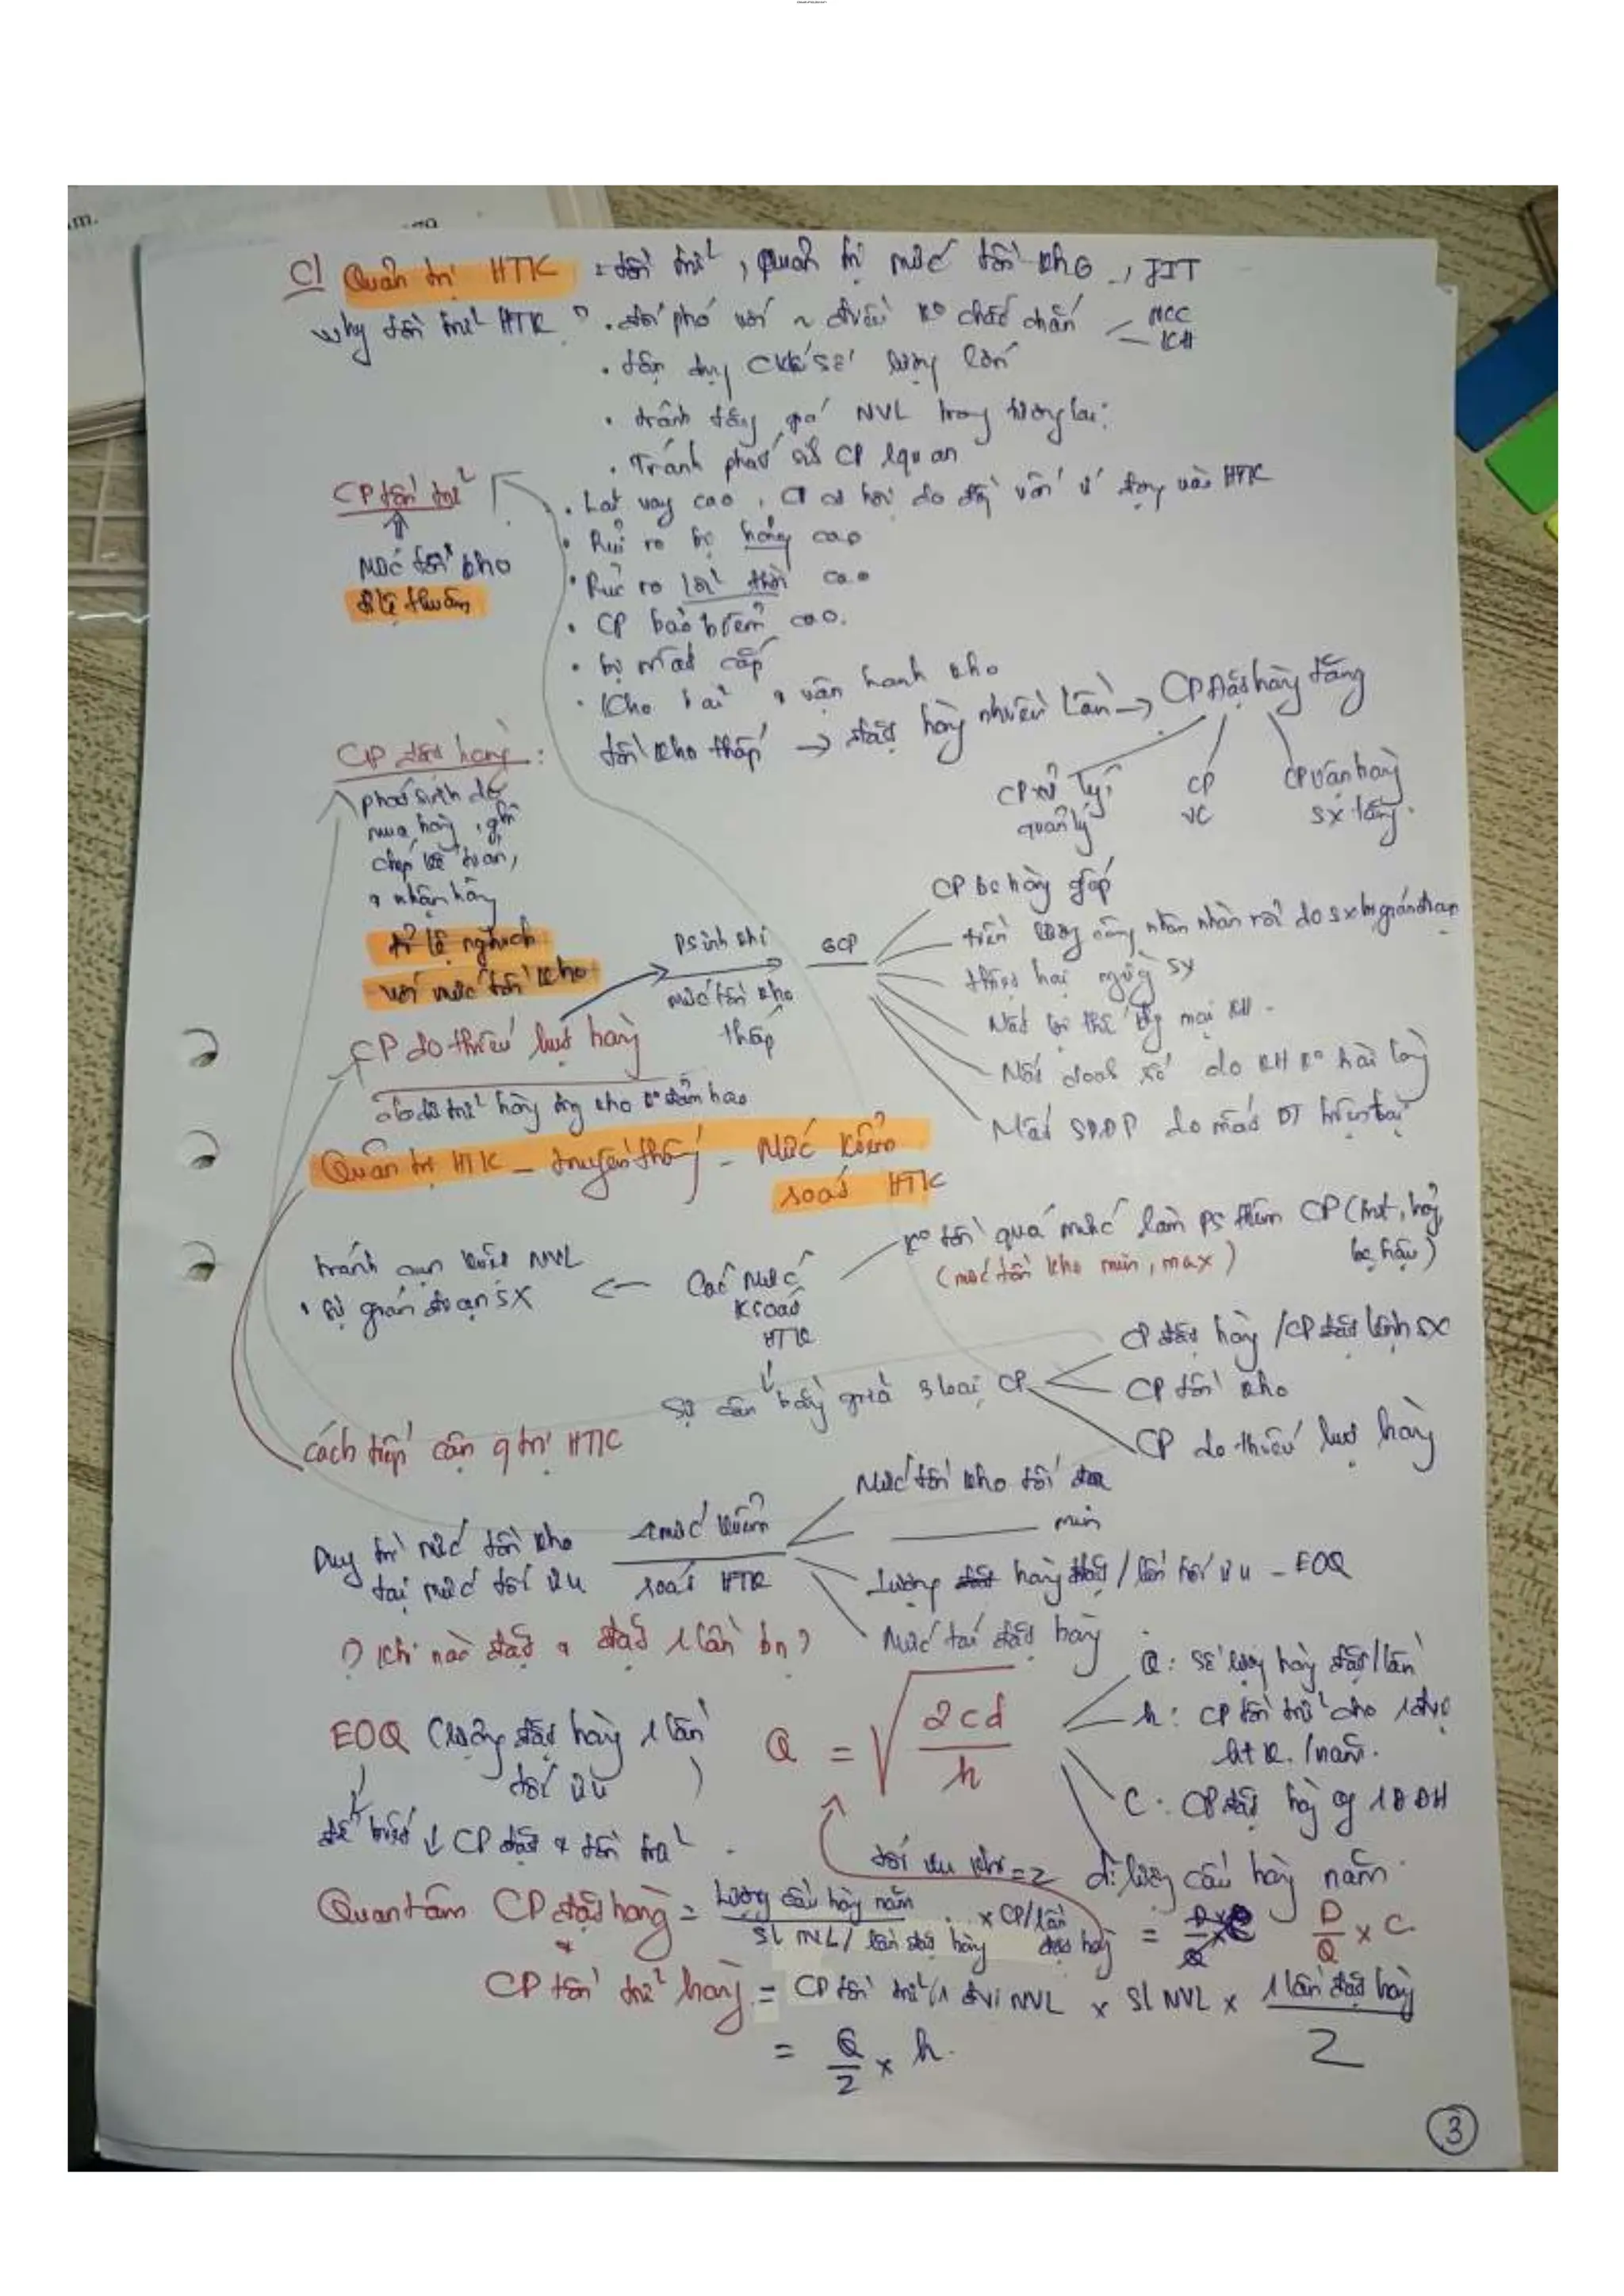 C/ Quản trị HTK = tồn trữ, Quản trị mức tồn kho, JIT
why tồn trữ HTK? • đối phó với ~ điều ko chắc chắn NCC
KH
• tận dụng số lượng lớn
• tránh tăng giá NVL trong tương lai
• Tránh phát CP lquan
CP tồn trữ
• Lãi vay cao, CP cơ hội do đầu vốn ứ đọng vào HTK
• Rủi ro bị hỏng cao
Mức tồn kho
tỉ lệ thuận
• Rủi ro lỗi thời cao
• CP bảo hiểm cao.
• bị mất cắp
• Kho bãi & vận hành kho
CP đặt hàng:
tồn kho thấp → đặt hàng nhiều lần → CP Đặt hàng tăng
CP xử lý, quản lý
CP VC
CP vận hàng SX tăng.
phát sinh do
mua hàng, ghi
chép kế toán,
& nhận hàng
tỉ lệ nghịch
với mức tồn kho
Psinh khi
mức tồn kho
thấp
6CP
CP bc hàng gấp
tiền lương công nhân nhàn rỗi do sx bị gián đoạn
thiệt hại ngừng SX
Mất lợi thế tg mại KH.
Mất doah số do KH ko hài lòng
Mất do mất DT hiện tại
CP do thiếu hụt hàng
do dữ trữ hàng tng kho ko đảm bảo
Quản trị HTK - truyền thống - Mức kiểm
soát HTK
tránh cạn kiệt NVL
& sự gián đoạn SX
← Các Mức
Ksoát
HTK
ko tồn quá mức làm ps thêm CP (hỏng, lạc hậu)
(mức tồn kho min, max)
Sự cân bằng giữa 3 loại CP
CP đặt hàng / CP đặt lệnh SX
CP tồn kho
CP do thiếu hụt hàng
Cách tiếp cận qtrị HTK
Duy trì mức tồn kho
tại mức tối ưu
4 mức kiểm
soát HTK
Mức tồn kho tối đa
min
Lượng hàng đặt / lần tối ưu - EOQ
Mức tái đặt hàng
? Khi nào đặt & đặt 1 lần bn?
EOQ (lượng đặt hàng 1 lần
tối ưu)
Q = √ 2cd / h
Q: số lượng hàng đặt/lần
h: CP tồn trữ cho 1 đvị
htk /năm.
C: CP đặt hàng of 1 ĐĐH
d: lượng cầu hàng năm.
để biết ↓ CP đặt & tồn trữ
tối ưu khi = 2
Quan tâm CP đặt hàng = Lượng cầu hàng năm / SL NVL / lần đặt hàng × CP/lần đặt hàng = D/Q × C
&
CP tồn trữ hàng = CP tồn trữ/1 đvi NVL × SL NVL × 1 lần đặt hàng / 2
= Q/2 × h.
3